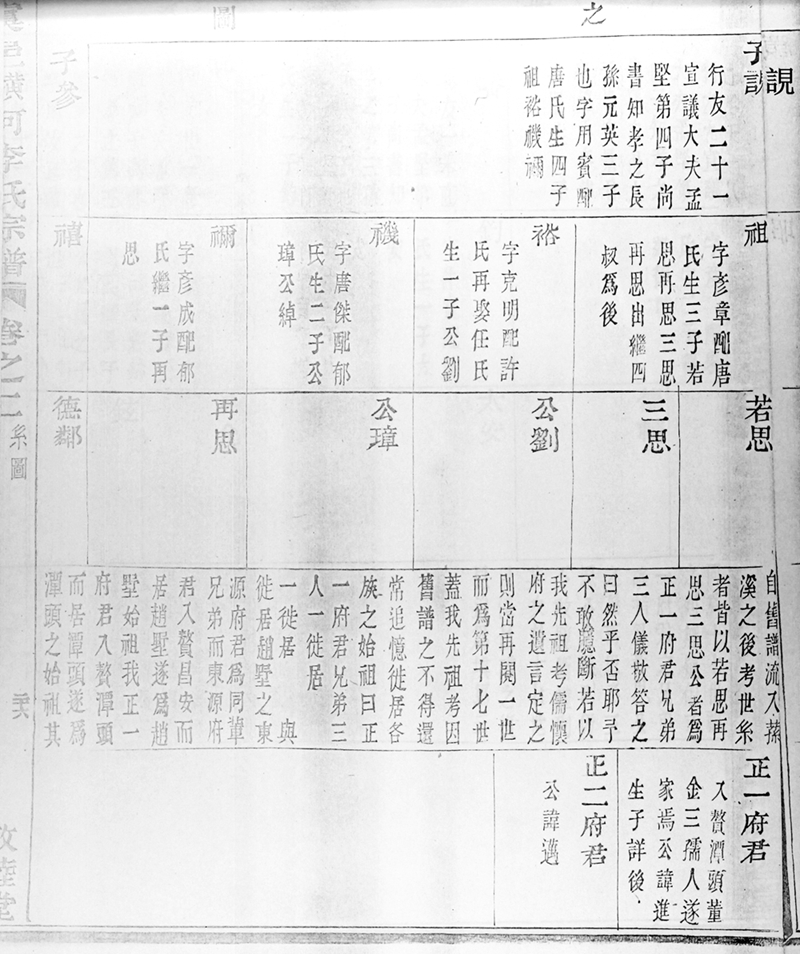 之
圖
誢
子誢
行友二十一
宣議大夫孟
堅第四子尚
書知孝之長
孫元英三子
也字用賓配
唐氏生四子
祖裕禨禰
子參
祖
字彥章配唐
氏生三子若
思再思三思
再思出繼四
叔爲後
裕
字克明配許
氏再娶任氏
生一子公劉
禨
字唐傑配郁
氏生二子公
璋公綽
禰
字彥成配郁
氏繼一子再
思
禧
若思
三思
公劉
公璋
再思
德鄰
自舊譜流入蓀
溪之後考世系
者皆以若思再
思三思公者爲
正一府君兄弟
三人儀敬答之
曰然乎否耶予
不敢臆斷若以
我先祖考儒懷
府之遺言定之
則當再閱一世
而爲第十七世
蓋我先祖考因
舊譜之不得還
常追憶徙居各
族之始祖曰正
一府君兄弟三
人一徙居
一徙居 與
徙居趙墅之東
源府君爲同輩
兄弟而東源府
君入贅昌安而
居趙墅遂爲趙
墅始祖我正一
府君入贅潭頭
而居潭頭遂爲
潭頭之始祖其
正一府君
入贅潭頭董
金三孺人遂
家焉公諱進
生子詳後
正二府君
公諱邁
邑橫河李氏宗譜 卷之二 系圖
敦睦堂